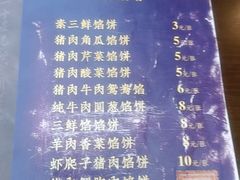 素三鲜馅饼 3元/张
猪肉角瓜馅饼 5元/张
猪肉芹菜馅饼 5元/张
猪肉酸菜馅饼 5元/张
猪肉牛肉鸳鸯馅 6元/张
纯牛肉圆葱馅饼 8元/张
三鲜馅饼 8元/张
羊肉香菜馅饼 8元/张
虾爬子猪肉馅饼 10元/张